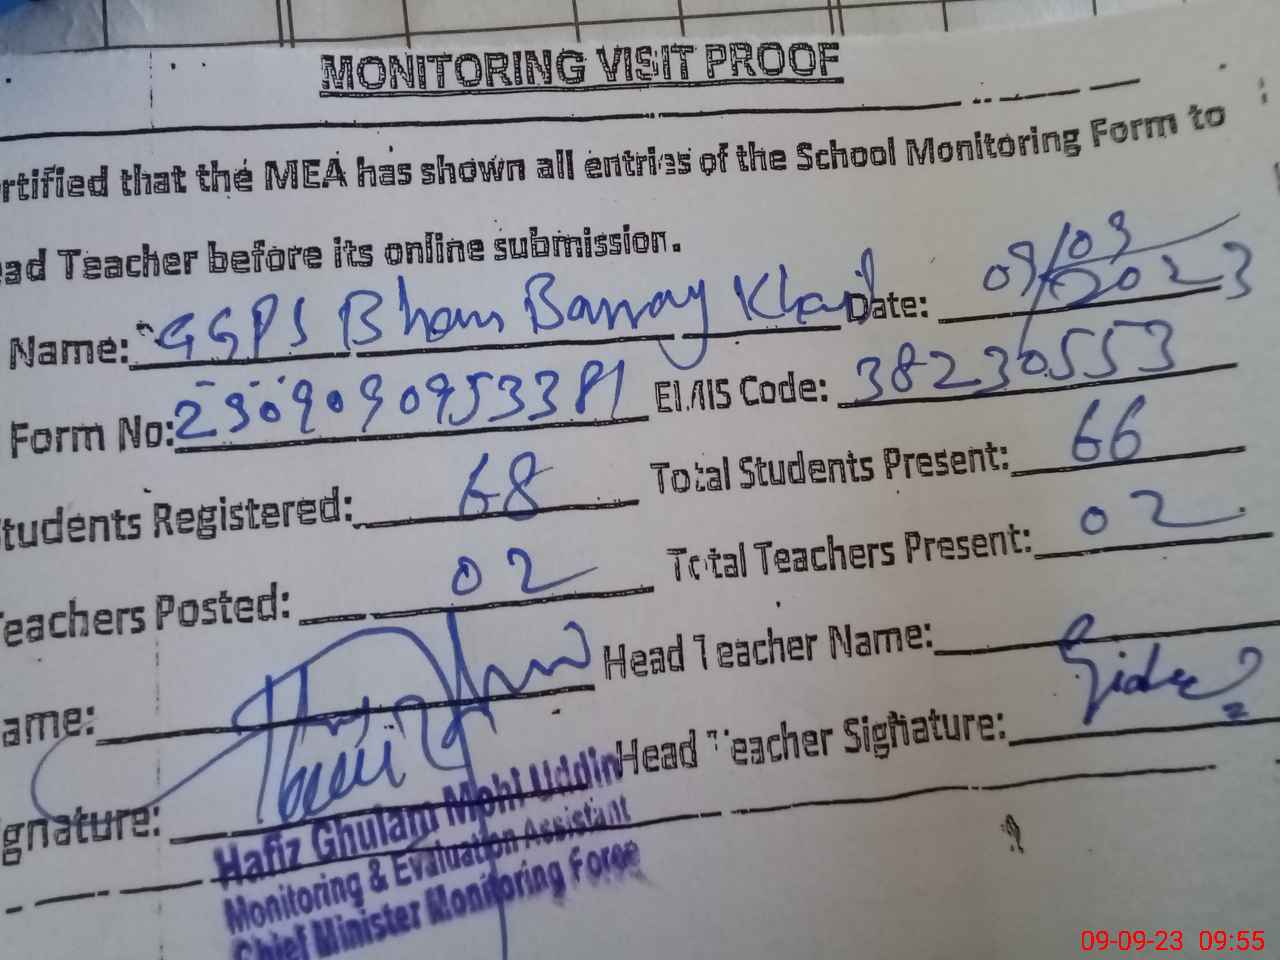 MONITORING VISIT PROOF
rtified that the MEA has shown all entries of the School Monitoring Form to
ead Teacher before its online submission.
Name: GGPS Bham Barray Khail Date: 09/09/2023
Form No: 23090909953381 EMIS Code: 38230553
Students Registered: 68 Total Students Present: 66
Teachers Posted: 02 Total Teachers Present: 02
ame: Head Teacher Name:
gnature: Head Teacher Signature:
Hafiz Ghulam Mohi Uddin
Monitoring & Evaluation Assistant
Chief Minister Monitoring Force
09-09-23 09:55